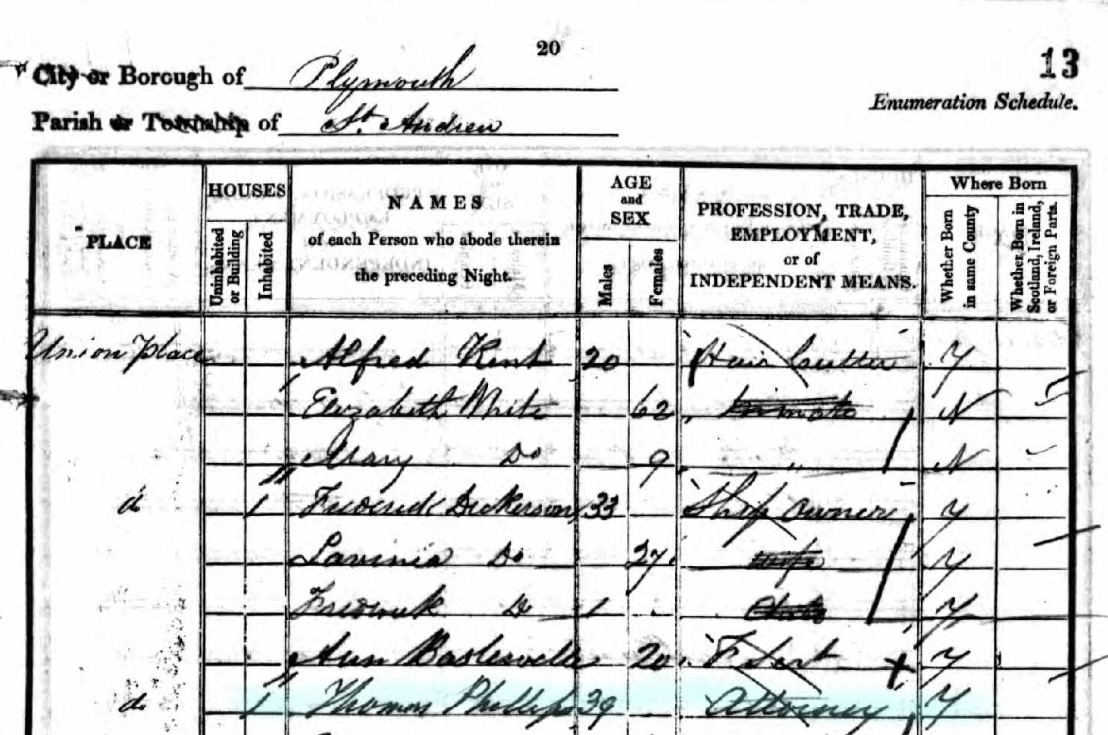 20
13
City or Borough of Plymouth
Enumeration Schedule.
Parish or Township of St. Andrew
PLACE
HOUSES
Uninhabited or Building
Inhabited
NAMES
of each Person who abode therein
the preceding Night.
AGE
and
SEX
Males
Females
PROFESSION, TRADE,
EMPLOYMENT,
or of
INDEPENDENT MEANS.
Where Born
Whether Born in same County
Whether Born in Scotland, Ireland, or Foreign Parts.
Union Place Alfred Kent 20 Hair Cutter Y
Elizabeth White 62 Inmate N
Mary Do 9 " N
do 1 Frederick Dickerson 33 Ship Owner Y
Lavinia Do 27 wife Y
Frederick Do 1 Child Y
Ann 20 F Sert Y
do 1 Thomas Phillips 39 Attorney Y